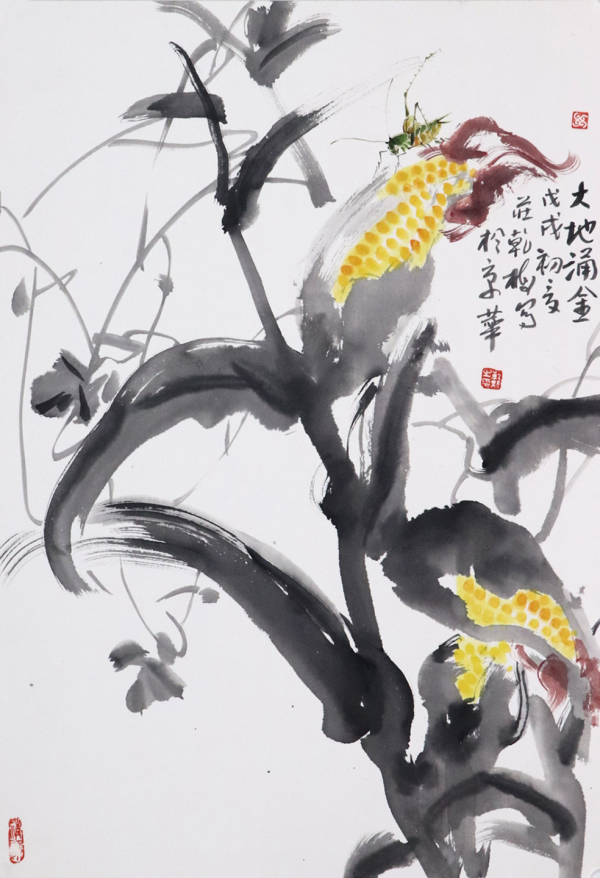 大地涌金
戊戌初夏
莊乾梅写
於京華